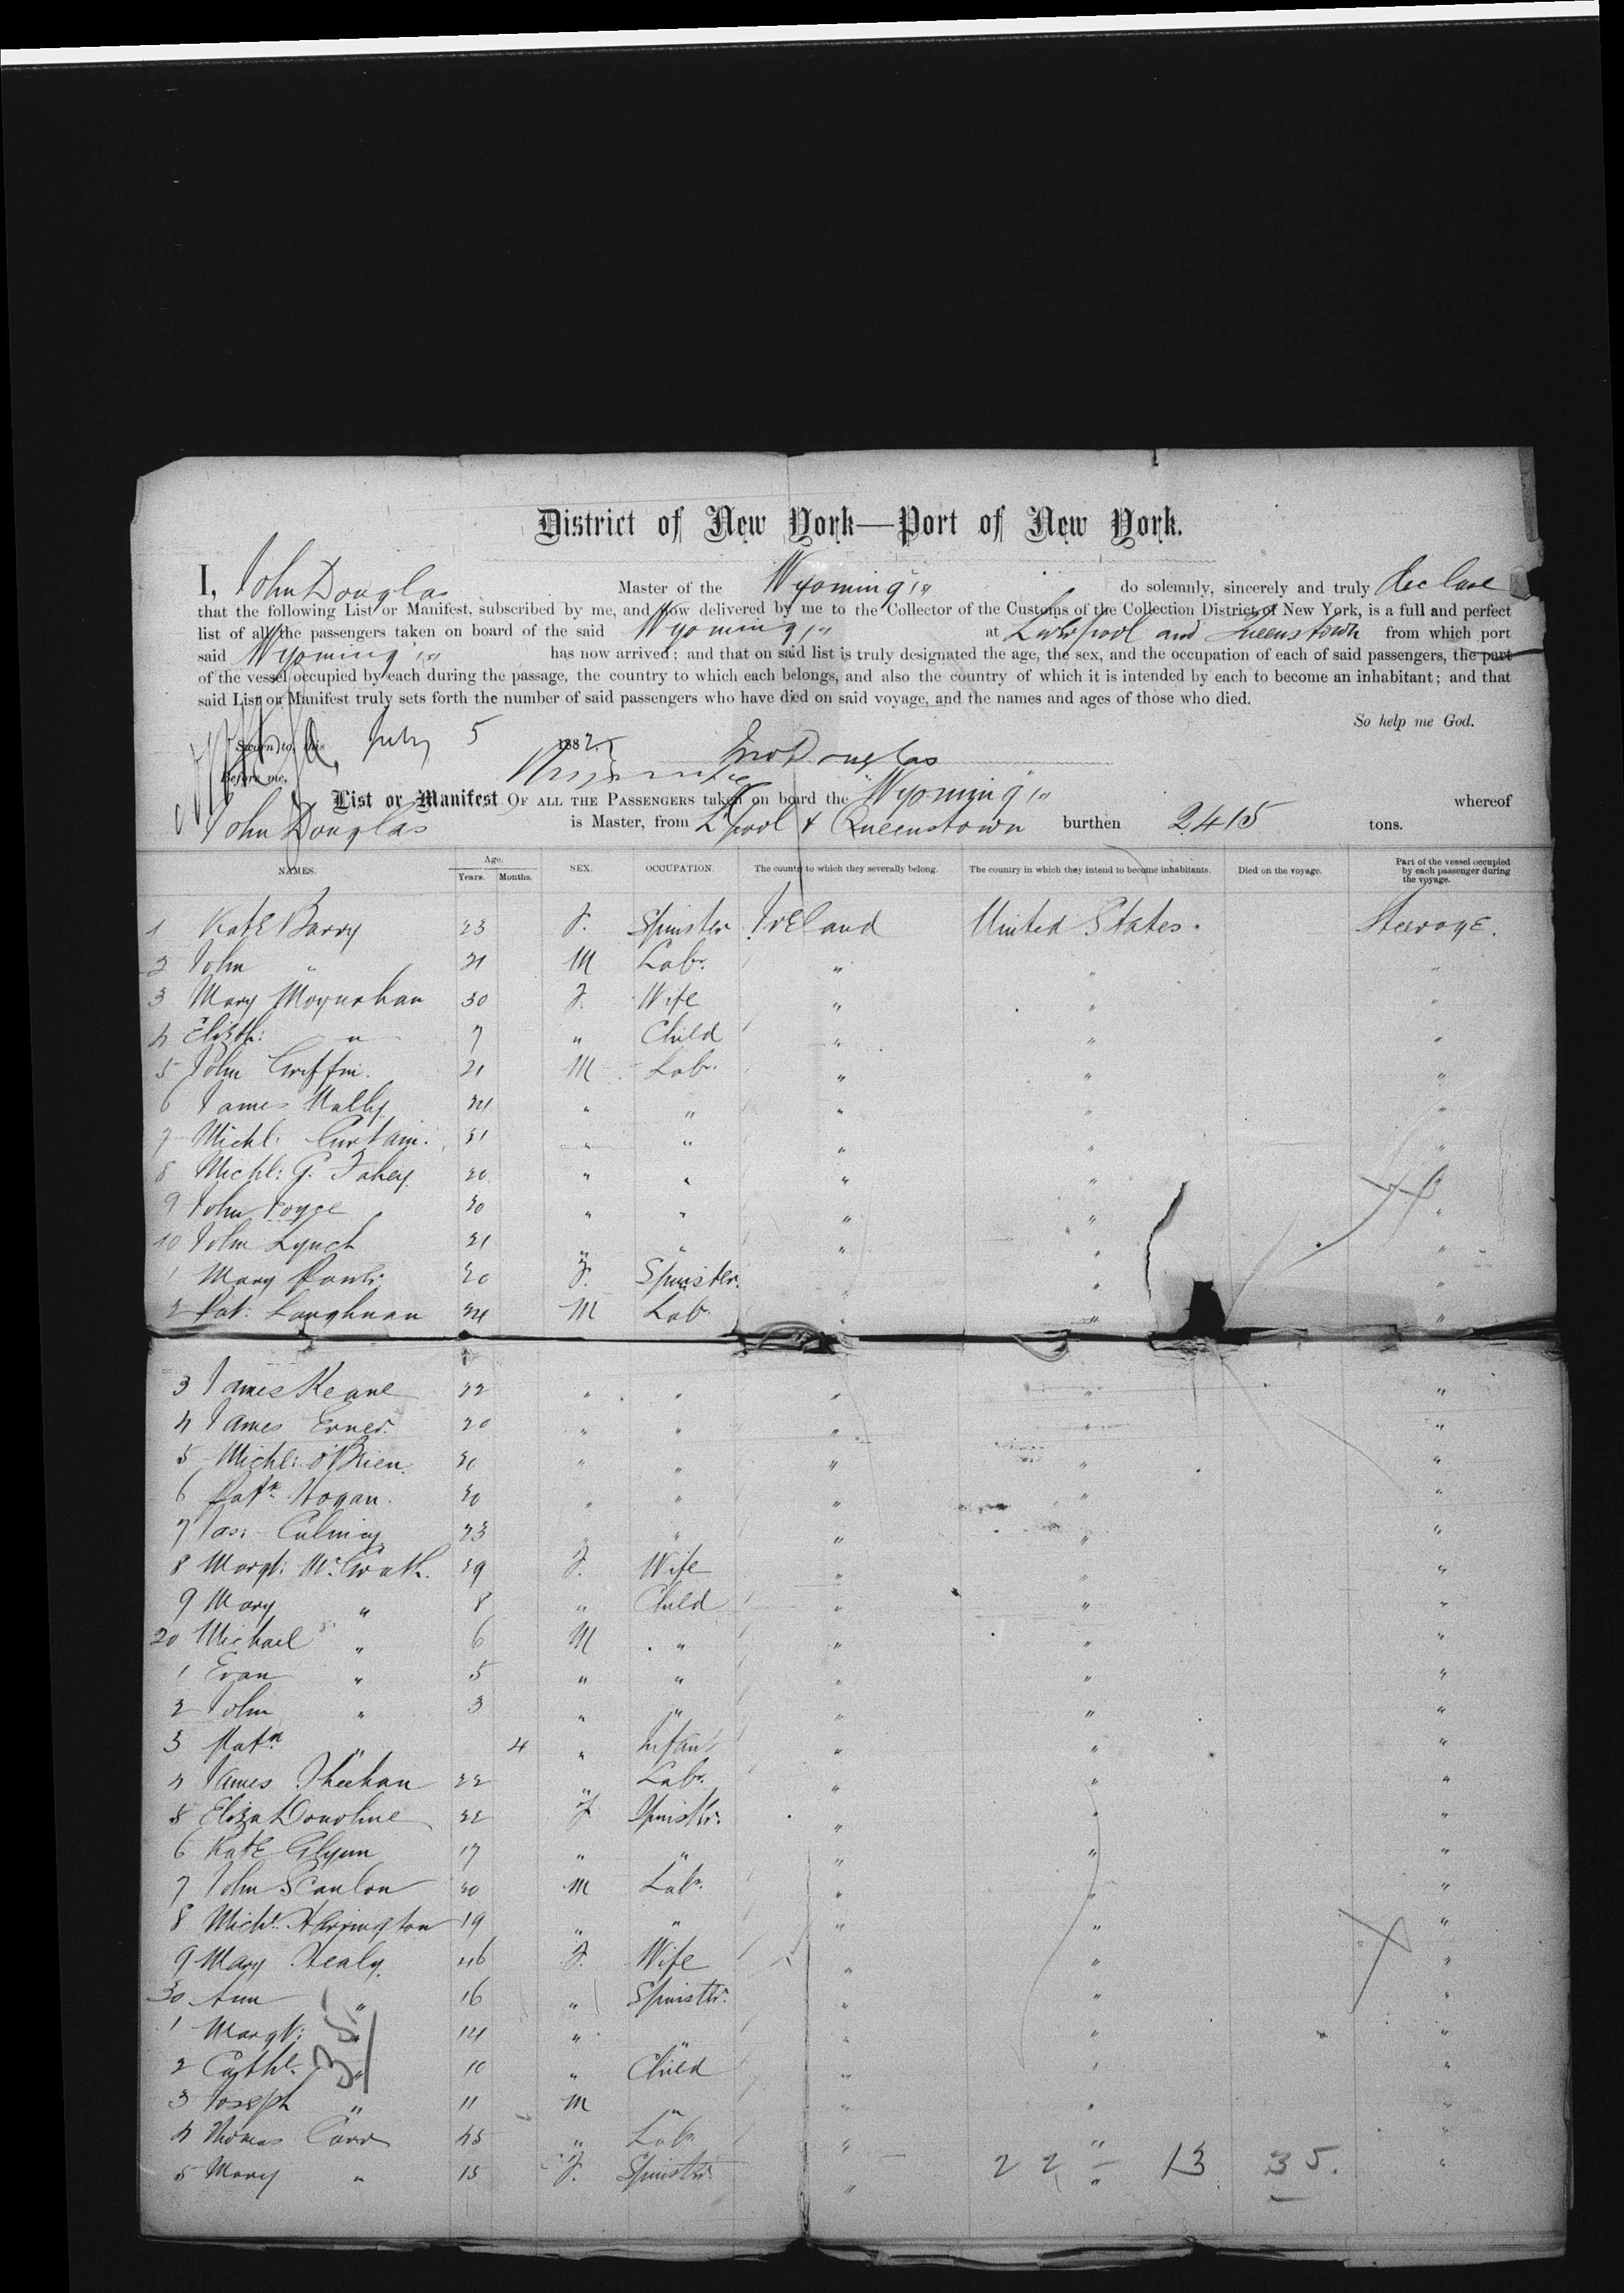 District of New York—Port of New York.
I, John Douglas Master of the "Wyoming" do solemnly, sincerely and truly declare
that the following List or Manifest, subscribed by me, and now delivered by me to the Collector of the Customs of the Collection District of New York, is a full and perfect
list of all the passengers taken on board of the said Wyoming at Liverpool and Queenstown from which port
said Wyoming has now arrived; and that on said list is truly designated the age, the sex, and the occupation of each of said passengers, the part
of the vessel occupied by each during the passage, the country to which each belongs, and also the country of which it is intended by each to become an inhabitant; and that
said List or Manifest truly sets forth the number of said passengers who have died on said voyage, and the names and ages of those who died.
So help me God.
Sworn to this July 5 1882
Jno Douglas
Before me,
List or Manifest OF ALL THE PASSENGERS taken on board the "Wyoming" whereof
John Douglas is Master, from L'pool & Queenstown burthen 2415 tons.
NAMES. Age. Years. Months. SEX. OCCUPATION. The country to which they severally belong. The country in which they intend to become inhabitants. Died on the voyage. Part of the vessel occupied by each passenger during the voyage.
1 Kate Barry 23 F. Spinster Ireland United States. Steerage.
2 John " 21 M Labr. " " "
3 Mary Moynahan 30 F. Wife " " "
4 Elizth: " 7 " Child " " "
5 John Griffin. 21 M Labr. " " "
6 James Nally 24 " " " " "
7 Michl: Curtain. 21 " " " " "
8 Michl: G. Fahey. 20 " " " " "
9 John Joyce 20 " " " " "
10 John Lynch 21 " " " " "
1 Mary 20 F. Spinster. " " "
2 Pat: Loughnan 24 M Labr. " " "
3 James Keane 22 " " " " "
4 James 20 " " " " "
5 Michl: O'Brien. 30 " " " " "
6 Patk. Hogan. 30 " " " " "
7 Jas: 23 " " " " "
8 Margt: McGrath. 39 F. Wife " " "
9 Mary " 8 " Child " " "
20 Michael " 6 M " " " "
1 Evan " 5 " " " " "
2 John " 3 " " " " "
3 Patk " 4 " Infant " " "
4 James Sheehan 22 " Labr. " " "
5 Eliza Donohue 22 F Spinstr. " " "
6 Kate Glynn 17 " " " " "
7 John Scanlon 20 M Labr. " " "
8 Michl. Herrington 19 " " " " "
9 Mary Healy. 46 F. Wife " " "
30 Ann " 16 " Spinstr. " " "
1 Margt: " 14 " " " " "
2 Cathe. " 10 " Child " " "
3 Joseph " 11 M " " " "
4 Thomas Carr 45 " Labr " " "
5 Mary " 15 F. Spinstr " " "
35
22 — 13 35.